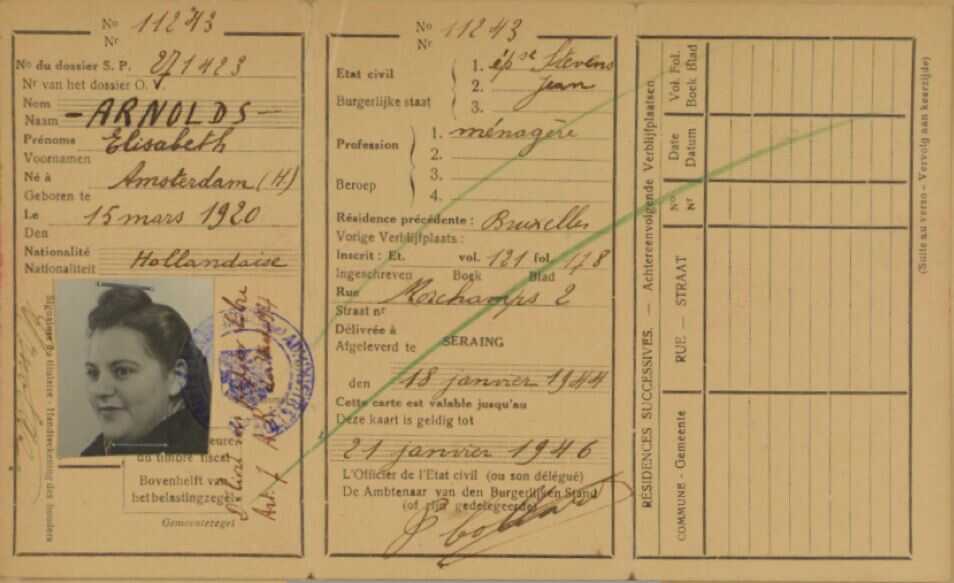 No
Nr 11243
No du dossier S. P. 271423
Nr van het dossier O. V.
Nom
Naam - ARNOLDS -
Prénoms Elisabeth
Voornamen
Né à Amsterdam (H)
Geboren te
Le 15 mars 1920
Den
Nationalité Hollandaise
Nationaliteit
Signature du titulaire - Handteekening des houders
du timbre fiscal
Bovenhelft van
het belastingzegel
Gemeentezegel
No
Nr 11243
Etat civil 1. épse Stevens
2. Jean
Burgerlijke staat 3.
Profession 1. ménagère
2.
3.
Beroep
4.
Résidence précédente : Bruxelles
Vorige Verblijfplaats :
Inscrit : Et. vol. 121 fol. 178
Ingeschreven Boek Blad
Rue 2
Straat nr
Délivrée à SERAING
Afgeleverd te
den 18 janvier 1944
Cette carte est valable jusqu'au
Deze kaart is geldig tot
21 janvier 1946
L'Officier de l'Etat civil (ou son délégué)
De Ambtenaar van den Burgerlijken Stand
(of zijn gedelegeerde)
RÉSIDENCES SUCCESSIVES. — Achtereenvolgende Verblijfplaatsen
COMMUNE - Gemeente
RUE — STRAAT
No
Nr
Date
Datum
Vol. Fol.
Boek Blad
(Suite au verso - Vervolg aan keerzijde)